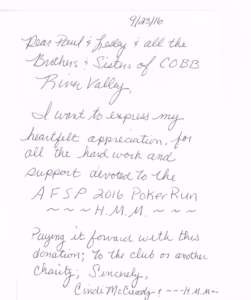 9/23/16
Dear Paul & Lesley & all the
Brothers & Sisters of COBB
River Valley,
I want to express my
heartfelt appreciation, for
all the hard work and
support devoted to the
AFSP 2016 Poker Run
~ ~ ~ H.M.M. ~ ~ ~
Paying it forward with this
donation; to the club or another
charity; Sincerely,
Cindi